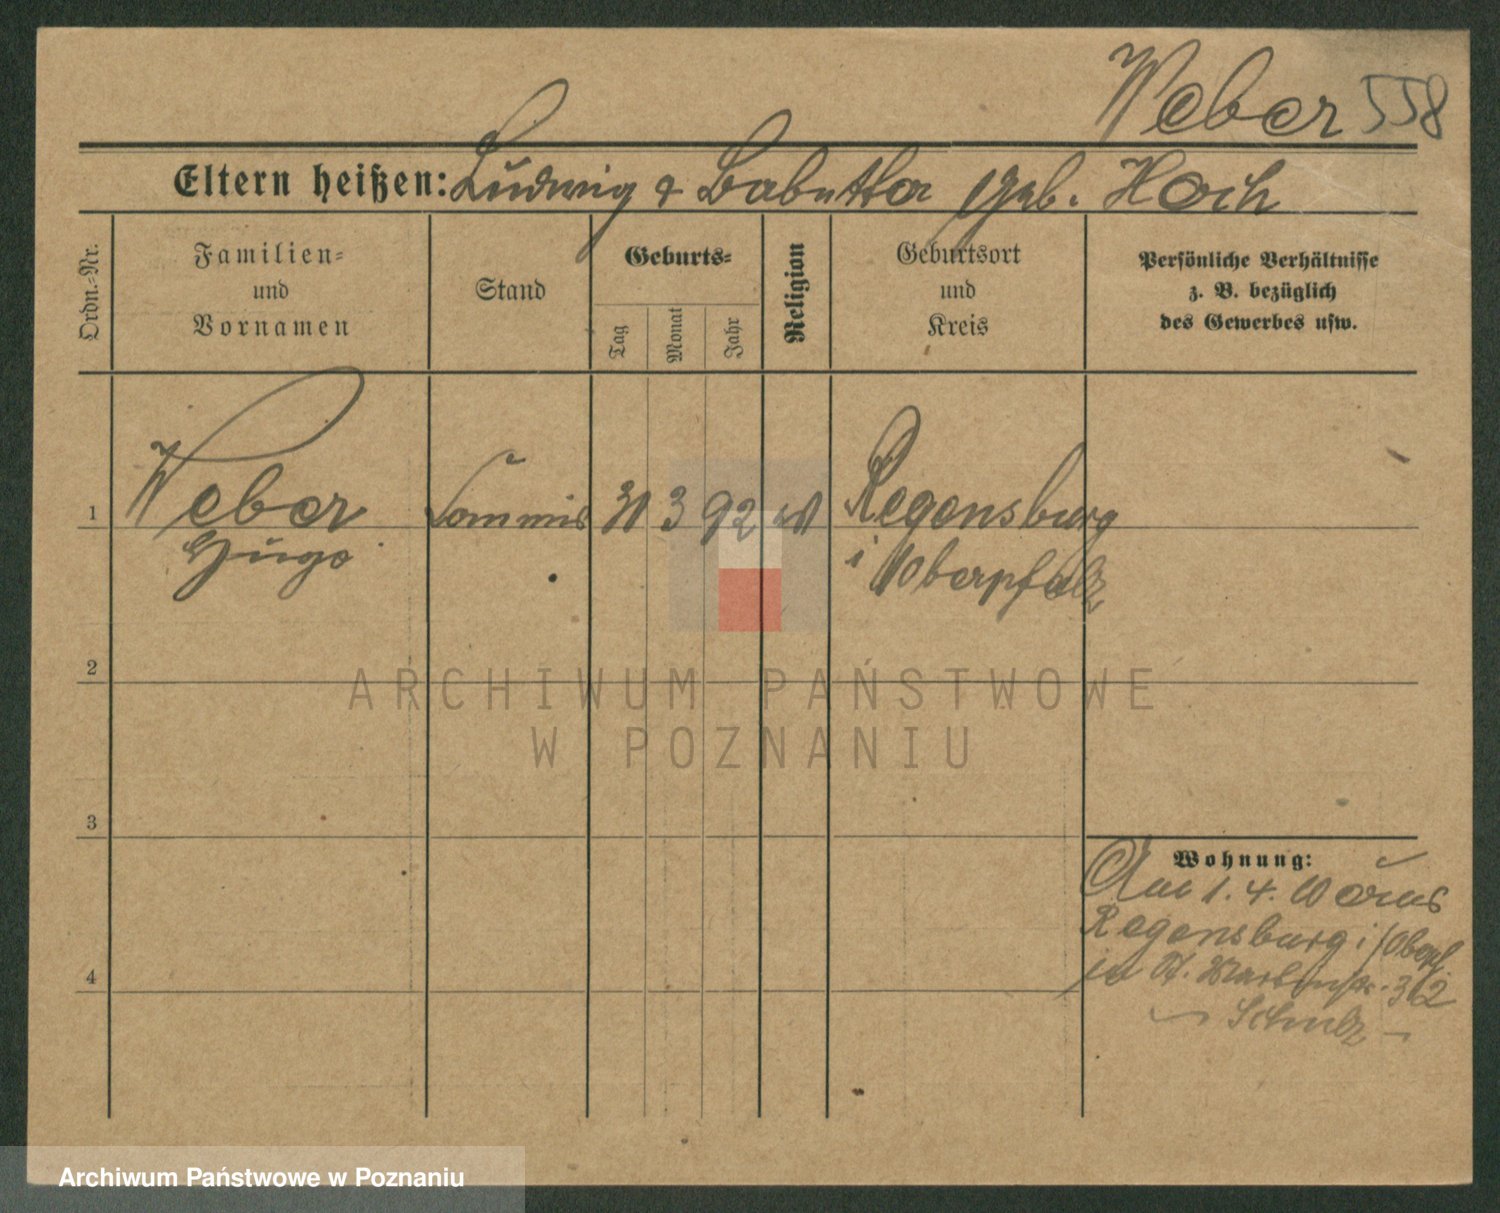 Weber 558
Eltern heißen: Ludwig & Babettea geb. Hoch
Ordn.=Nr.
Familien=
und
Vornamen
Stand
Geburts=
Tag
Monat
Jahr
Religion
Geburtsort
und
Kreis
Persönliche Verhältnisse
z. B. bezüglich
des Gewerbes usw.
1
Weber
Hugo
Commis
31 3 92
Regensburg
i/Oberpfalz
2
3
4
Wohnung:
Am 1. 4. 10
Regensburg i/Oberpf
in St. Martinstr. 32
Schulz
ARCHIWUM PAŃSTWOWE
W POZNANIU
Archiwum Państwowe w Poznaniu